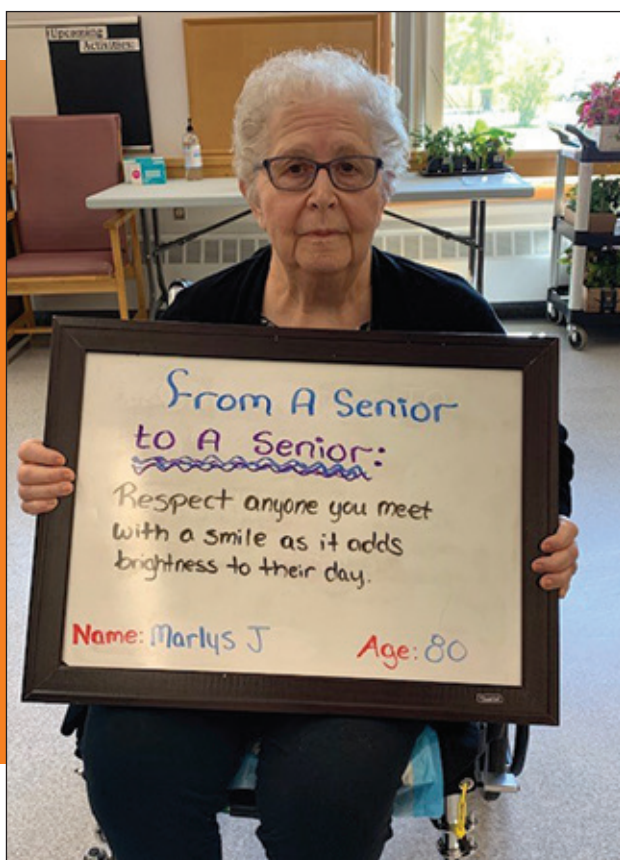 Upcoming
Activities:
From A Senior
to A Senior:
Respect anyone you meet
with a smile as it adds
brightness to their day.
Name: Marlys J Age: 80